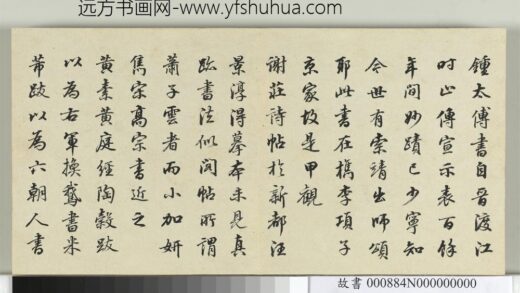 远方书画网-www.yfshuhua.com
鍾太傅書自晉渡江
時止傳宣示表百餘
年間妙蹟已少寧知
今世有索靖出師頌
耶此書在檇李項子
京家故是甲觀
謝莊詩帖於新都汪
景淳得摹本未見真
臨書法似閣帖所謂
蕭子雲者而小加妍
雋宋高宗書近之
黃素黃庭經陶穀跋
以為右軍換鵞書米
芾跋以為六朝人書
故書 000884N000000000